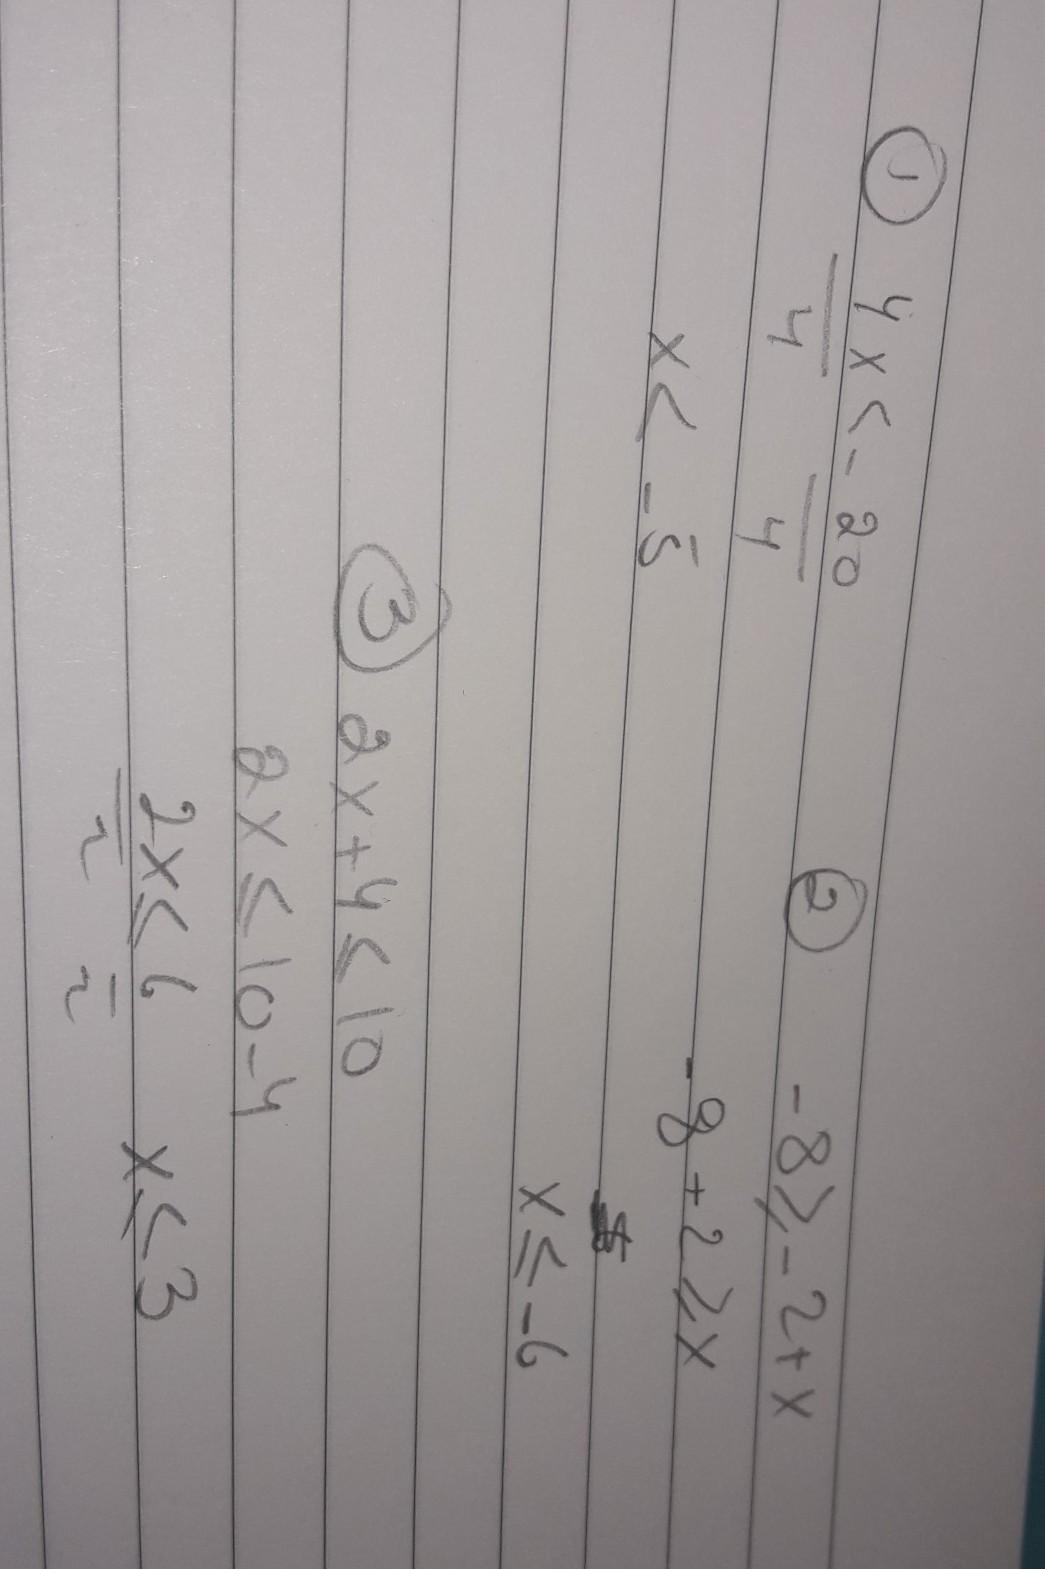 ① 4x < -20
4 4
x < -5
② -8 ⩾ -2+x
-8+2 ⩾ x
x ≤ -6
③ 2x+4 ≤ 10
2x ≤ 10-4
2x ≤ 6
2 2
x ≤ 3